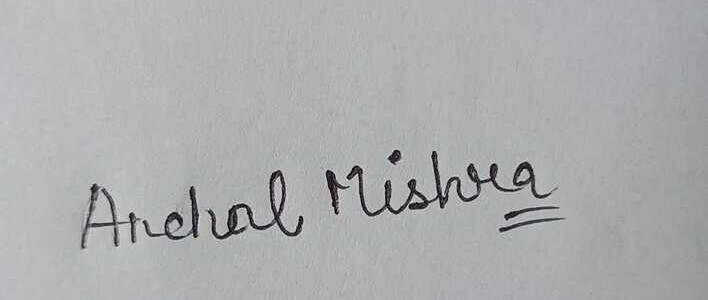 Anchal Mishra